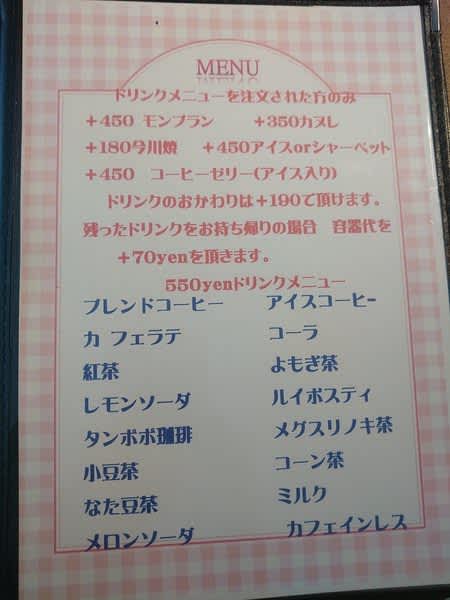 MENU
ドリンクメニューを注文された方のみ
+450 モンブラン +350カヌレ
+180今川焼 +450アイスorシャーベット
+450 コーヒーゼリー(アイス入り)
ドリンクのおかわりは+190で頂けます。
残ったドリンクをお持ち帰りの場合 容器代を
+70yenを頂きます。
550yenドリンクメニュー
ブレンドコーヒー アイスコーヒー
カフェラテ コーラ
紅茶 よもぎ茶
レモンソーダ ルイボスティ
タンポポ珈琲 メグスリノキ茶
小豆茶 コーン茶
なた豆茶 ミルク
メロンソーダ カフェインレス